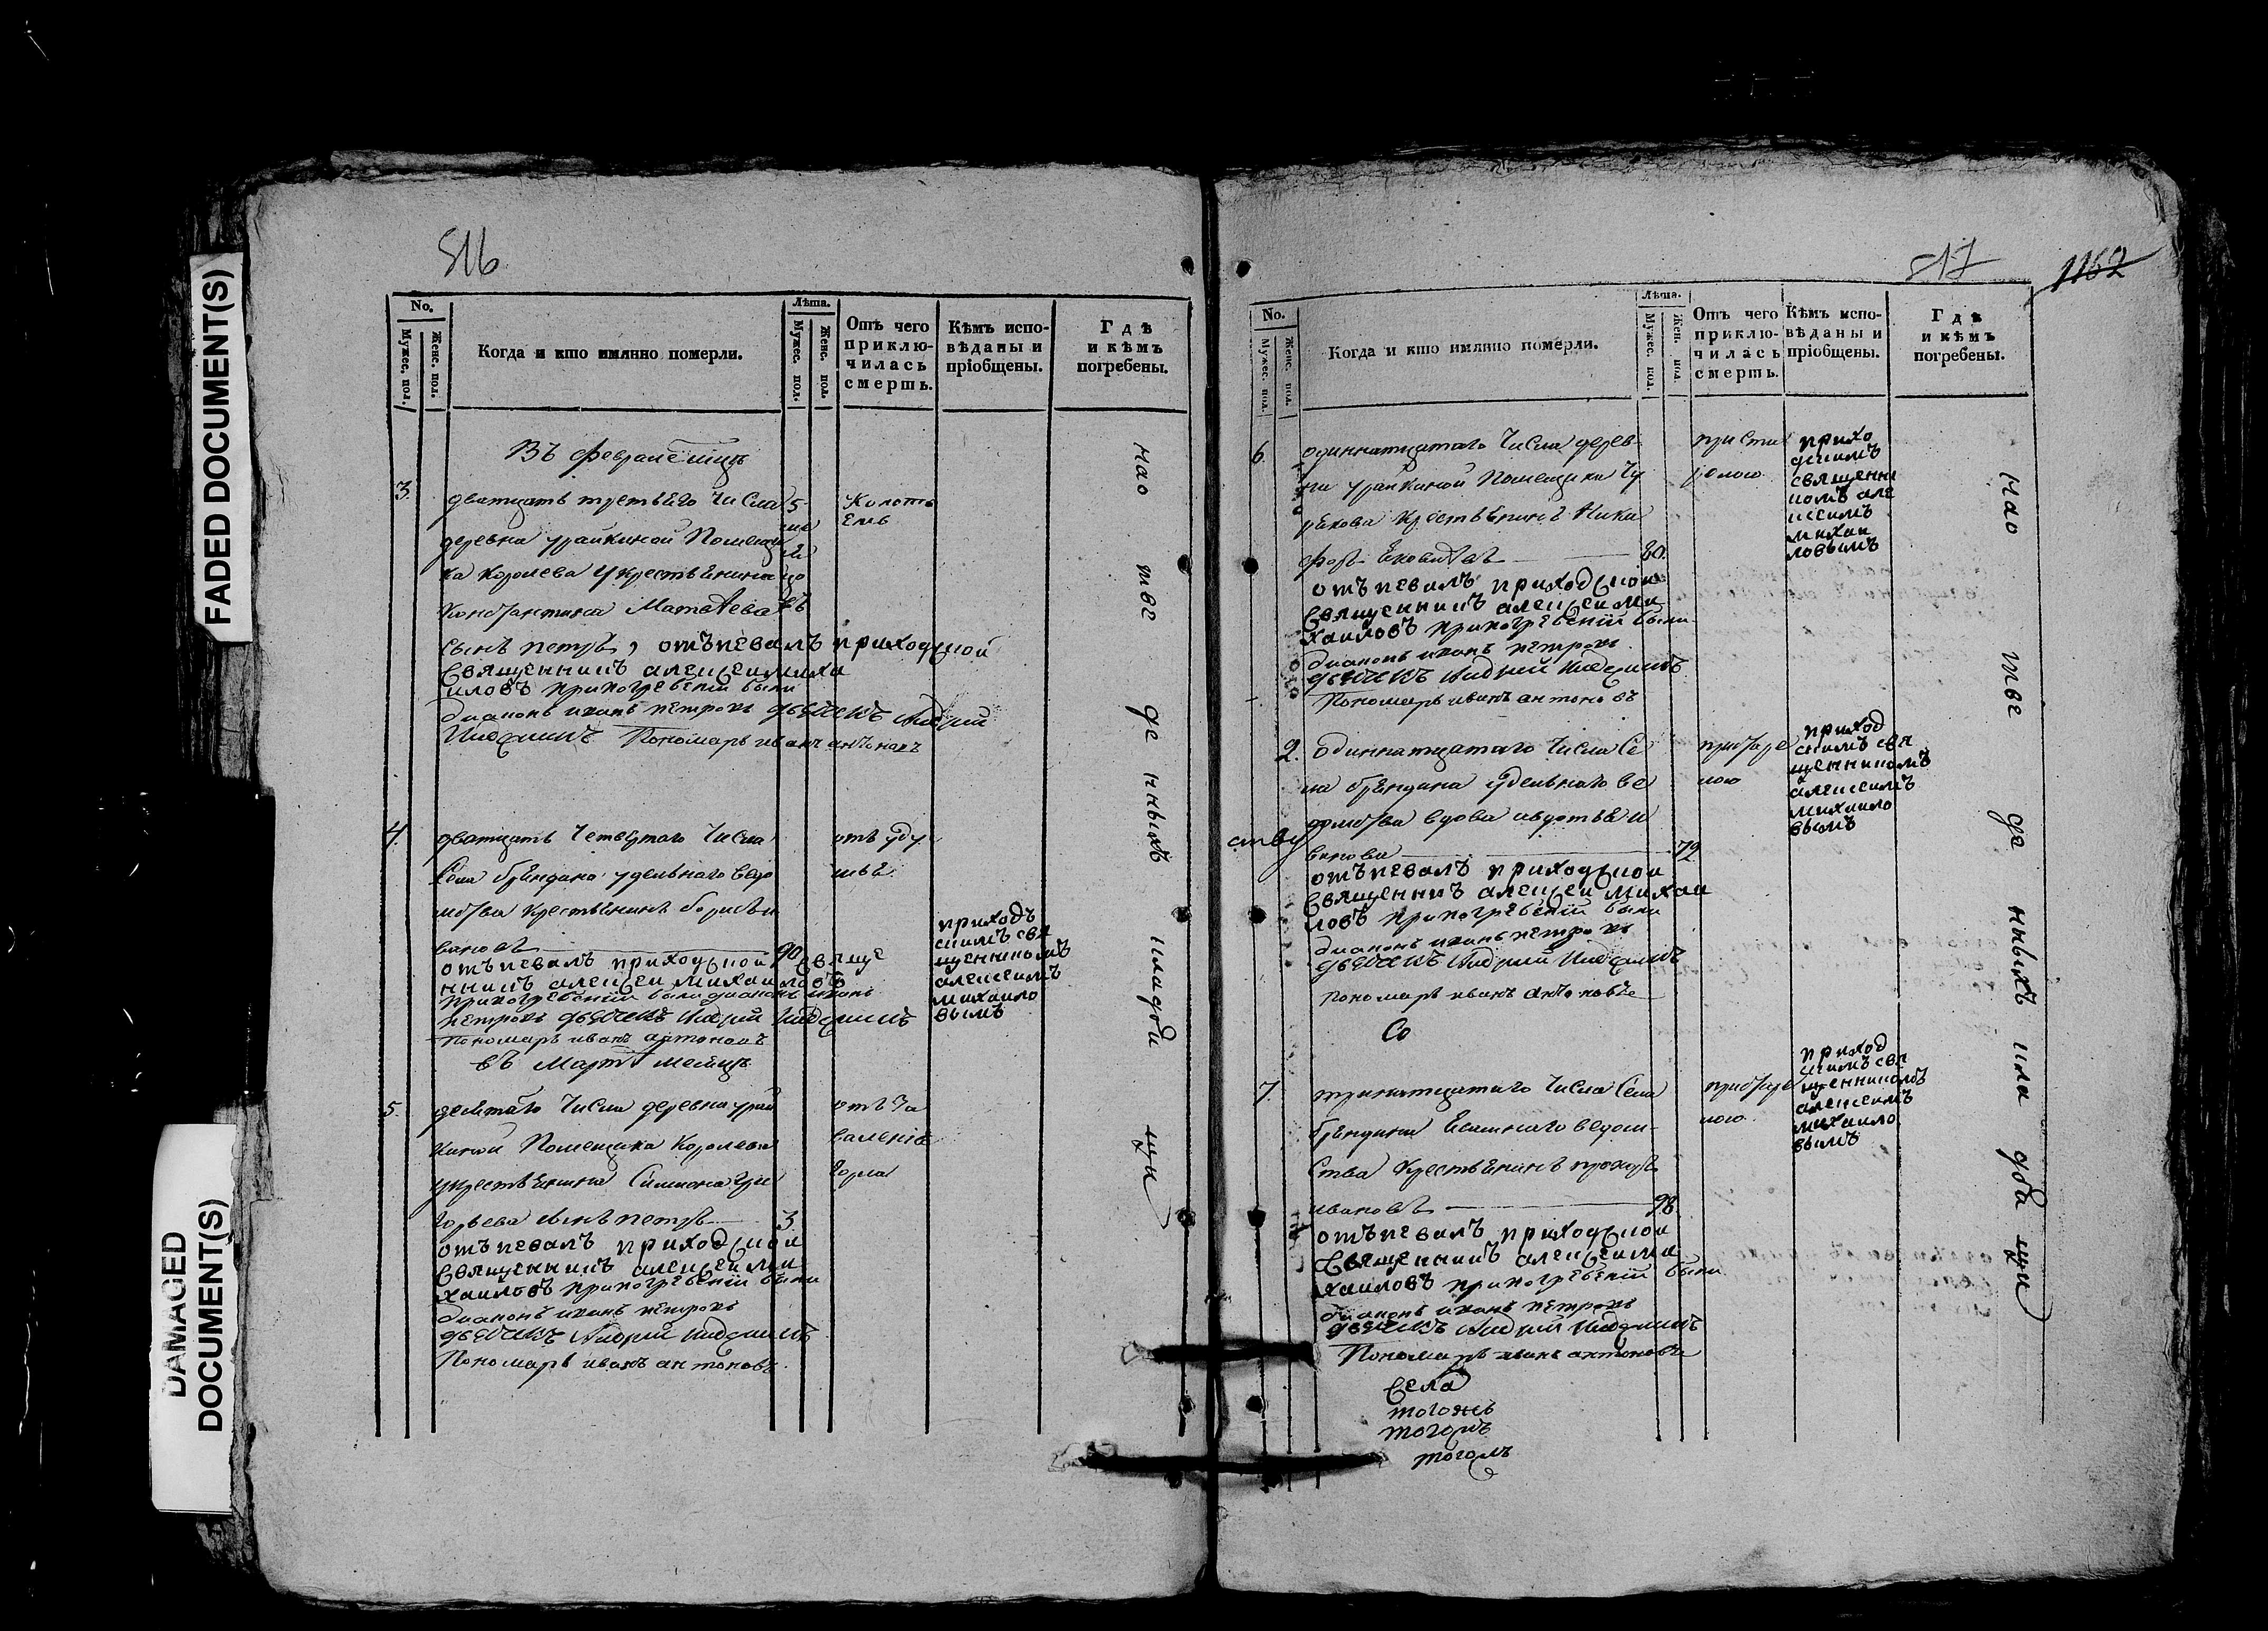 FADED DOCUMENT(S)
DAMAGED
DOCUMENT(S)
516
No.
Мужес. пол.
Женс. пол.
Когда и кто имянно померли.
Лѣта.
Мужес. пол.
Женс. пол.
Отъ чего
приклю-
чилась
смерть.
Кѣмъ испо-
вѣданы и
пріобщены.
Гдѣ
и кѣмъ
погребены.
Въ феврале
3.
дватцать третьего числа
деревна урайкиной Помещи
ка Королева у крестьенина
Константина Матвѣева
сынъ петръ, отъпевалъ приходской
священникъ алексеи миха
иловъ припогребеніи были
диаконъ иванъ петровъ дьячекъ Андрей
Пономарь иванъ антоновъ
5
Колоть
емъ
4.
дватцать четвертого числа
села брендина удельнаго ведо
мства крестьенинъ борисъ и
вановъ 90
отъпевалъ приходской свяще
нникъ алексеи михаиловъ
припогребеніи были диаконъ иванъ
петровъ дьячекъ Андрей
Пономарь иванъ антоновъ
отъ уду
шья
приходъ
скимъ свя
щенникомъ
алексеимъ
михаило
вымъ
въ Мартѣ месяцѣ
5.
десятаго числа деревна урай
киной Помещика Королева
укрестьенина Симиона Гри
горьева сынъ петръ 3.
отъпевалъ приходской
священникъ алексеи ми
хаиловъ припогребеніи были
диаконъ иванъ петровъ
дьячекъ Андрей
Пономарь иванъ антоновъ
отъ за
валеніе
горла
на отведенныхъ кладби щи
517
1162
No.
Мужес. пол.
Женс. пол.
Когда и кто имянно померли.
Лѣта.
Мужес. пол.
Жен. пол.
Отъ чего
приклю-
чилась
смерть.
Кѣмъ испо-
вѣданы и
пріобщены.
Гдѣ
и кѣмъ
погребены.
6.
одиннатцатого числа дерев
ни урайкиной Помещика Чу
рикова крестьенинъ Ники
форъ 80.
отъпевалъ приходской
священникъ алексеи ми
хаиловъ припогребеніи были
диаконъ иванъ петровъ
дьячекъ Андрей
Пономарь иванъ антоновъ
прихо
дскимъ
священни
комъ але
ксеимъ
михаи
ловымъ
2.
одиннатцатого числа се
ла брендина удельнаго ве
домства вдова авдотья и
ванова 72.
отъпевалъ приходской
священникъ алексеи михаи
ловъ припогребеніи были
диаконъ иванъ петровъ
дьячекъ Андрей
пономарь иванъ антоновъ
Со
ству
приход
скимъ свя
щенникомъ
алексеимъ
михаило
вымъ
7.
тринатцатого числа села
брендина ведом
ства крестьенинъ
ивановъ 98.
отъпевалъ приходской
священникъ алексеи ми
хаиловъ припогребеніи были
диаконъ иванъ петровъ
дьячекъ Андрей
Пономарь иванъ антоновъ
приход
скимъ свя
щенникомъ
алексеимъ
михаило
вымъ
села
тогожъ
тогожъ
на отведенныхъ кладби щи